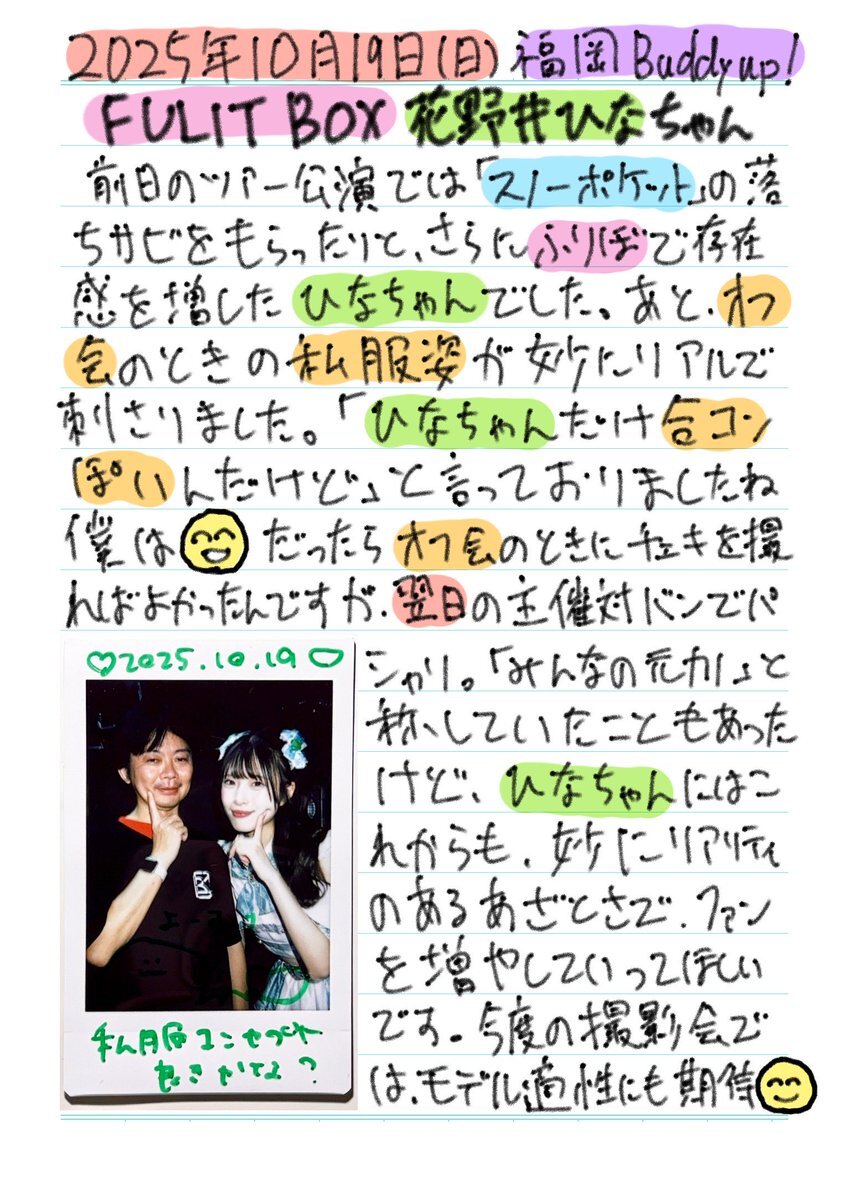 2025年10月19日(日) 福岡Buddy up!
FULIT BOX 花野井ひなちゃん
前日のツアー公演では「スノーポケット」の落
ちサビをもらったりと、さらにふりぼで存在
感を増したひなちゃんでした。あと、オフ
会のときの私服姿が妙にリアルで
刺さりました。「ひなちゃんだけ合コン
ぽいんだけど」と言っておりましたね
僕は だったらオフ会のときにチェキを撮
ればよかったんですが、翌日の主催対バンでパ
シャリ。「みんなの元カノ」と
称していたこともあった
けど、ひなちゃんにはこ
れからも、妙にリアリティ
のあるあざとさで、ファン
を増やしていってほしい
です。今度の撮影会で
は、モデル適性にも期待
♡2025.10.19♡
私服コンセプト
良きかな?